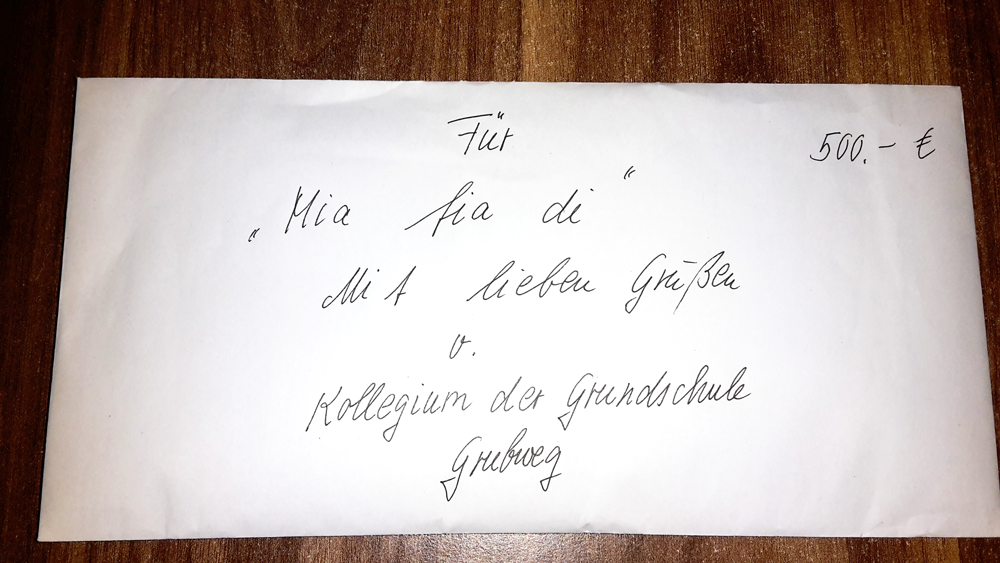 Für
500.- €
„Mia fia di“
Mit lieben Grüßen
v.
Kollegium der Grundschule
Grubweg